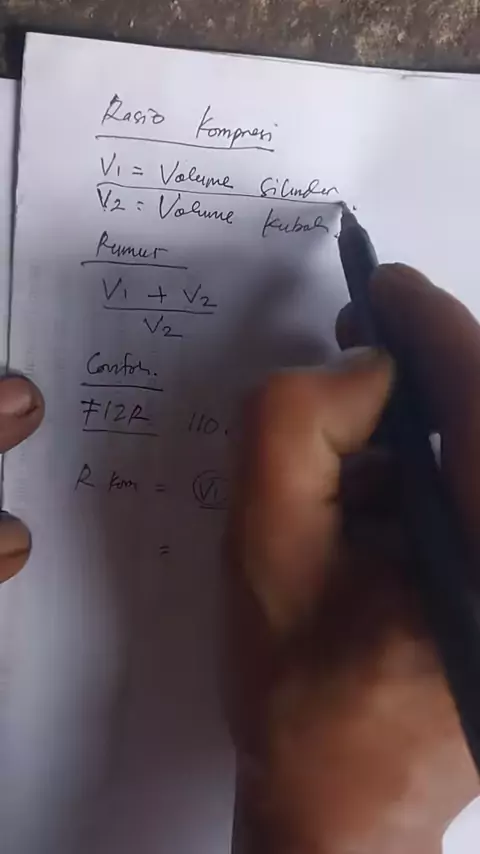 Rasio Kompresi
V1 = Volume Silinder
V2 = Volume Kubah
Rumus
V1 + V2
V2
Contoh.
FIZR 110.
R Kom = V1
=